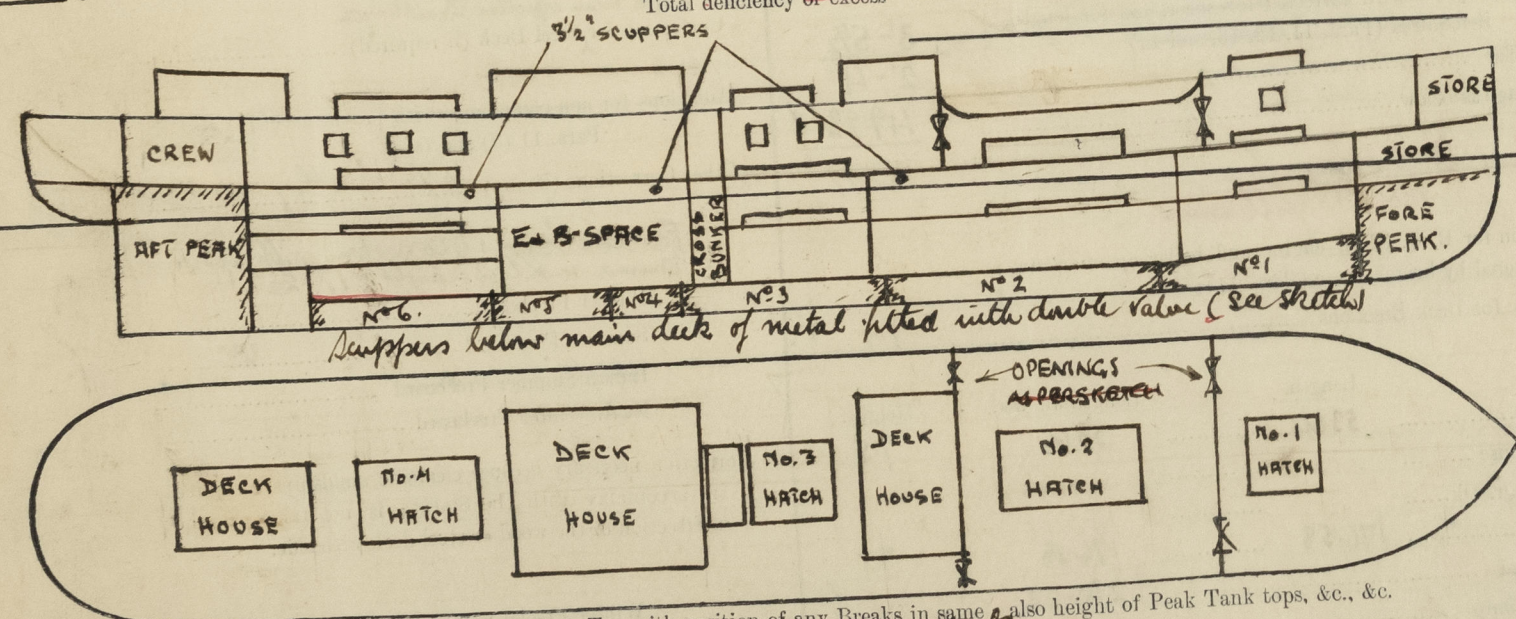 Total deficiency or excess
3½" SCUPPERS
STORE
CREW
STORE
AFT PEAK
E & B SPACE
CROSS BUNKER
FORE
PEAK.
No 6.
No 5
No 4
No 3
No 2
No 1
Scuppers below main deck of metal fitted with double valve (see sketch)
OPENINGS
AS PER SKETCH
DECK
HOUSE
No. 4
HATCH
DECK
HOUSE
No. 3
HATCH
DECK
HOUSE
No. 2
HATCH
No. 1
HATCH
of any Breaks in same also height of Peak Tank tops, &c., &c.